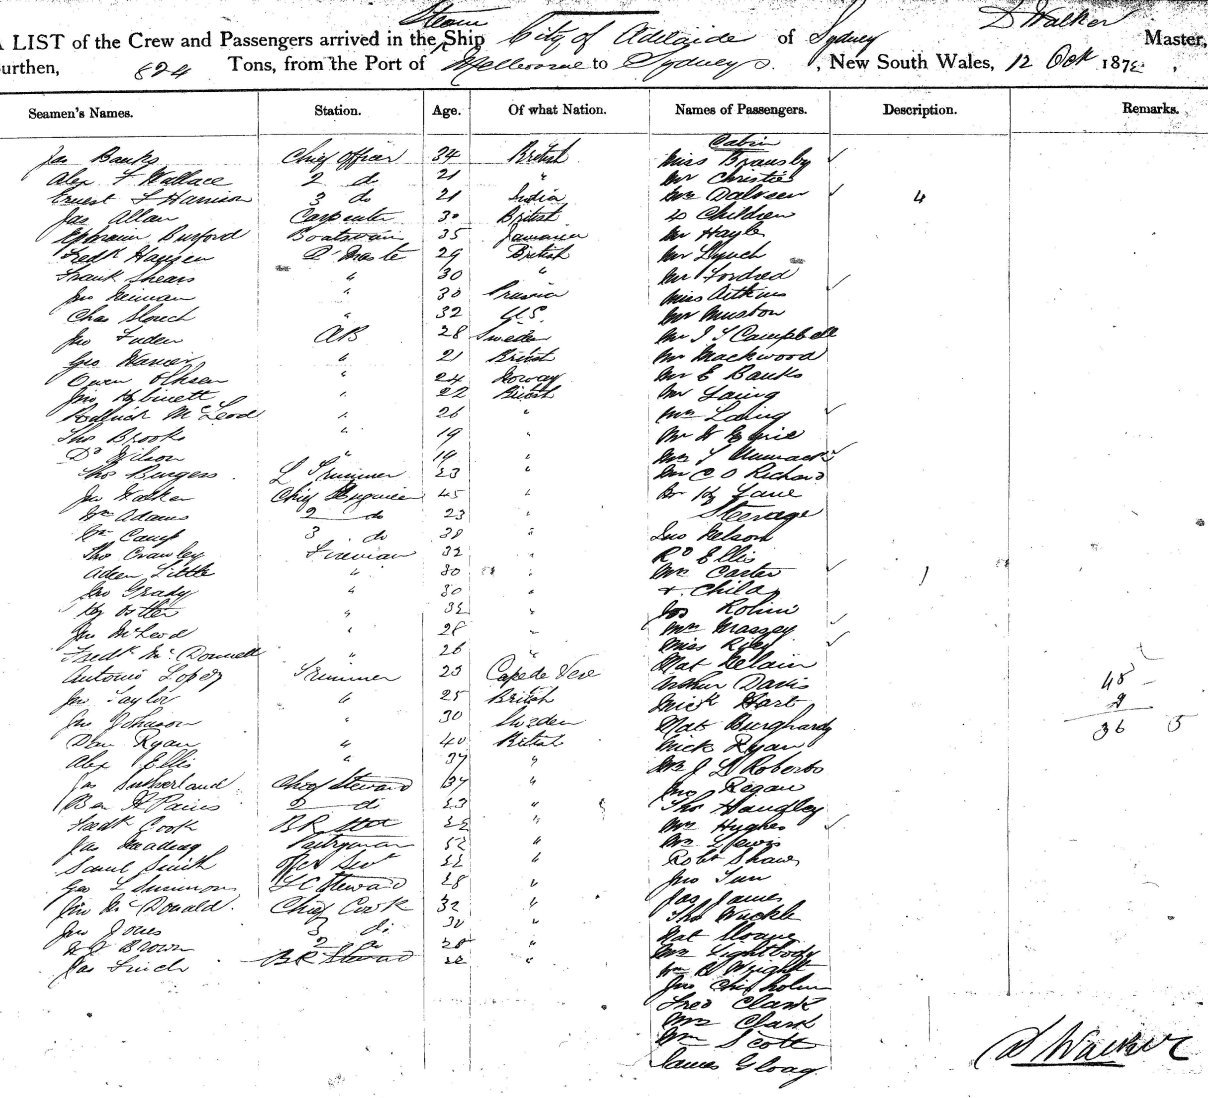 Steam D Walker
A LIST of the Crew and Passengers arrived in the Ship City of Adelaide of Sydney Master,
urthen, 824 Tons, from the Port of Melbourne to Sydney, New South Wales, 12 Oct 187
Seamen's Names. Station. Age. Of what Nation. Names of Passengers. Description. Remarks.
Cabin
Jas Banks Chief Officer 34 British Miss Bransby ✓
Alex F Wallace 2 do 21 " Mr Christie
Ernest S Harrison 3 do 21 India Mrs ✓ 4
Jas Allan Carpenter 30 British 4 Children
Ephraim Burford Boatswain 35 Jamaica Mr Hayle
Fredk Hansen Q Maste 29 British Mr Lynch
Frank Shears " 30 " Mr Fordred
Jno Neuman " 30 Prussia Miss Aitkins ✓
Chas " 32 U.S. Mr Muston
Jno AB 28 Sweden Mr J S Campbell
Geo " 21 British Mr Mackwood
Owen " 24 Norway Mr E Banks
Jno " 22 British Mr Laing
McLeod " 26 " Mrs Laing ✓
Tho Brooks " 19 " Mr
D Wilson " 19 " Mrs ✓
Tho Burgess L Trimmer 23 " Mr C O Richard
Jno Walker Chief Enginee 45 " Dr Hy Lane
Wm Adams 2 do 23 " Steerage
Wm Camp 3 do 38 " Jno Nelson
Tho Crawley Fireman 32 " Rd Ellis
Adam Little " 30 " Mrs Carter ✓ 1
Jno Grady " 30 " + Child
Hy Ostler " 32 " Jos
Jno McLeod " 28 " Mrs Massey ✓
Fredk McDonnell " 26 " Miss Riley ✓
Antonio Lopez Trimmer 23 Cape de Vere Nat Delain
Jno Taylor " 25 British Arthur Davis 45
Jno Johnson " 30 Sweden Mick Hart 9
Den Ryan " 40 British Nat Burghardy 36 5
Alex Ellis " 37 " Mick Ryan
Jas Sutherland Chief Steward 37 " Mrs J L Roberts
Ben H 2 do 23 " Jno Regan
Fredk Cook BR 22 " Tho Hangley
Jas Pantryman 52 " Mrs Hughes ✓
Saml Smith 22 " Mr Lewis
Geo L Simmons F C Steward 28 " Robt Shaw
Jno McDonald Chief Cook 32 " Jno
Jno Jones 3 do 30 " Jas James
Brown 2 do 28 " Tho Wickle
Jas Finch BR Steward 22 " Nat Sloane
Mr Lightbody
Wm H Wright
Jno Chisholm
Fred Clark
Mrs Clark
Wm Scott
James Gloag
D Walker